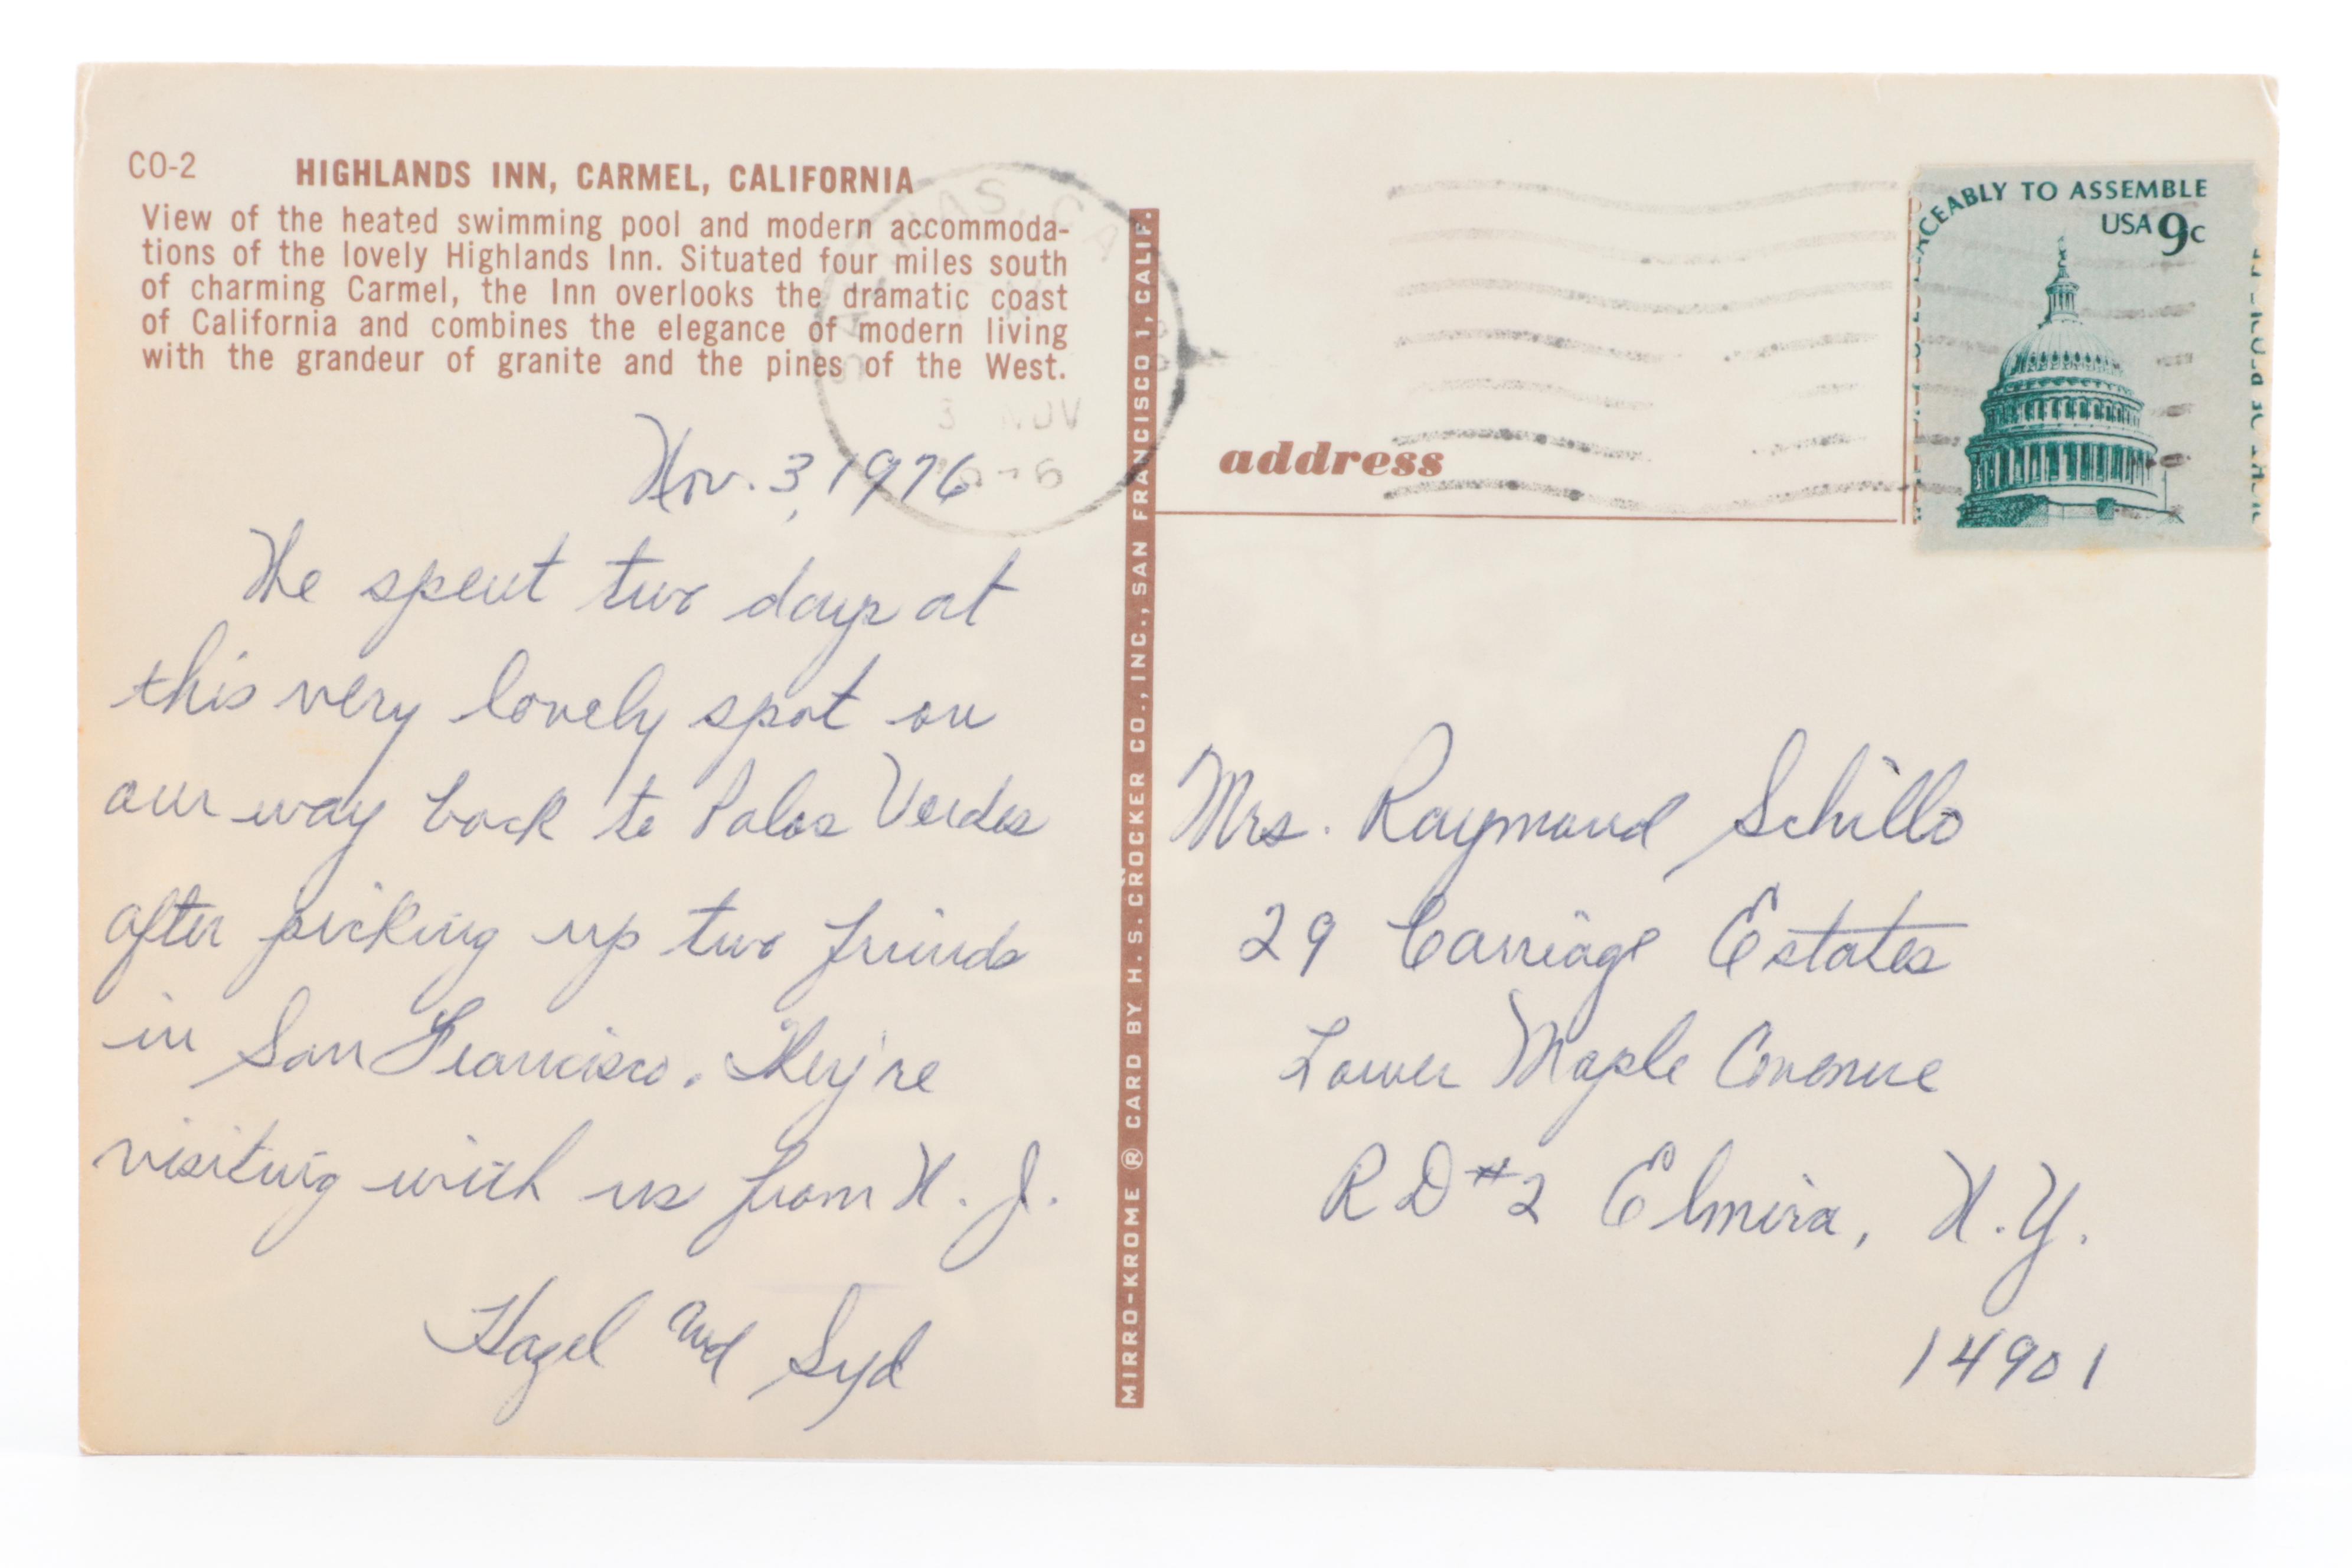 CO-2 HIGHLANDS INN, CARMEL, CALIFORNIA
View of the heated swimming pool and modern accommoda-
tions of the lovely Highlands Inn. Situated four miles south
of charming Carmel, the Inn overlooks the dramatic coast
of California and combines the elegance of modern living
with the grandeur of granite and the pines of the West.
Nov. 3, 1976
We spent two days at
this very lovely spot on
our way back to Palos Verdes
after picking up two friends
in San Francisco. They're
visiting with us from N. J.
Hazel and Syd
MIRRO-KROME ® CARD BY H. S. CROCKER CO., INC., SAN FRANCISCO 1, CALIF.
3 NOV
address
ACEABLY TO ASSEMBLE
USA 9c
Mrs. Raymond Schillo
29 Carriage Estates
Lower Maple Avenue
RD #2 Elmira, N.Y.
14901